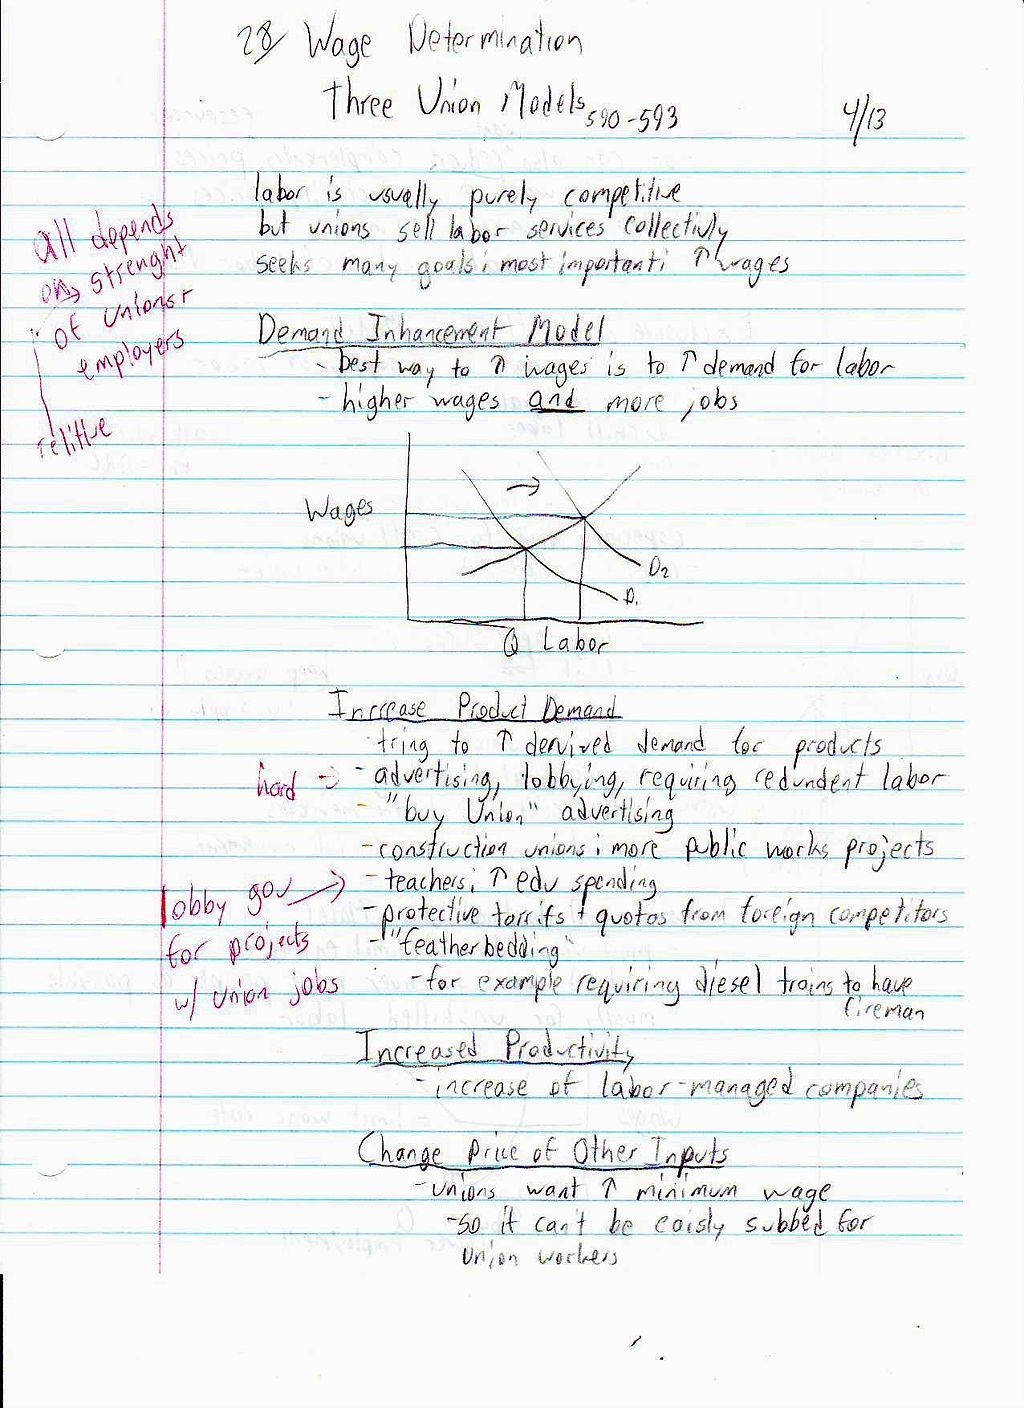 28 Wage Determination
Three Union Models 590-593
4/13
labor is usually purely competitive
but unions sell labor services collectivly
seeks many goals; most important: ↑ wages
all depends
on strenght
of unions +
employers
relitive
Demand Inhancement Model
- best way to ↑ wages is to ↑ demand for labor
- higher wages and more jobs
→
Wages
D2
D1
Q Labor
Increase Product Demand
tring to ↑ dervived demand for products
hard → - advertising, lobbying, requiring redundent labor
- "buy Union" advertising
- construction unions; more public works projects
- teachers; ↑ edu spending
lobby gov →
for projects
w/ union jobs
- protective tarrifs + quotas from foreign competitors
- "featherbedding"
- for example requiring diesel trains to have
fireman
Increased Productivity
- increase of labor-managed companies
Change Price of Other Inputs
- unions want ↑ minimum wage
- so it can't be eaisly subbed for
union workers